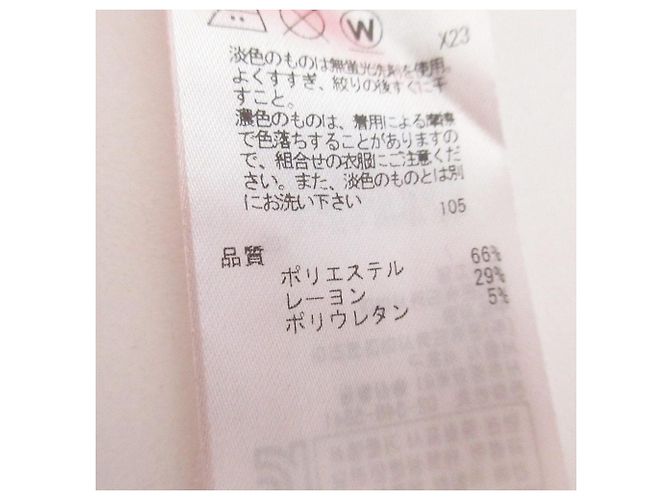 W
X23
淡色のものは無蛍光洗剤を使用。
よくすすぎ、絞りの後すぐに干
すこと。
濃色のものは、着用による摩擦
で色落ちすることがありますの
で、組合せの衣服にご注意くだ
さい。また、淡色のものとは別
にお洗い下さい
105
品質
ポリエステル 66%
レーヨン 29%
ポリウレタン 5%